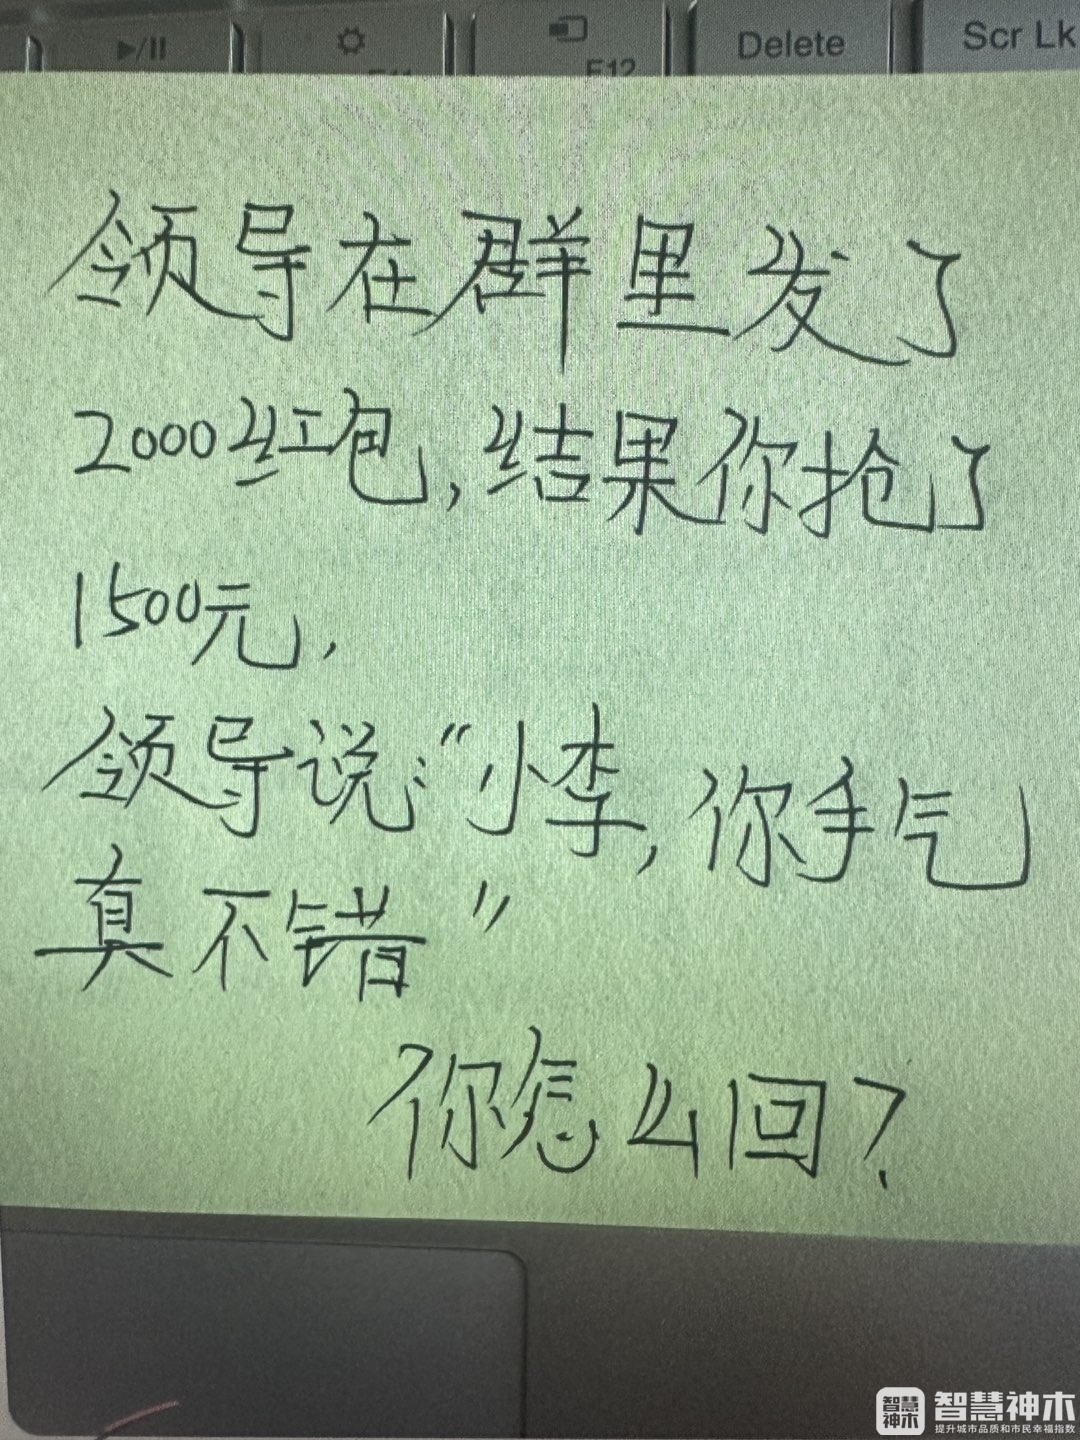 ▶/II
F11
F12
Delete
Scr Lk
领导在群里发了
2000红包,结果你抢了
1500元,
领导说:“小李,你手气
真不错”
你怎么回?
智慧神木
智慧神木
提升城市品质和市民幸福指数